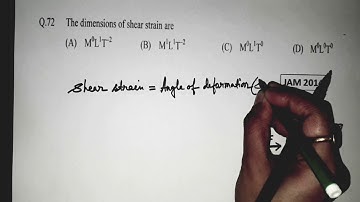 Q.72 The dimensions of shear strain are
(A) M⁰L¹T⁻² (B) M¹L¹T⁻² (C) M⁰L¹T⁰ (D) M⁰L⁰T⁰
Shear strain = Angle of deformation (
JAM 201